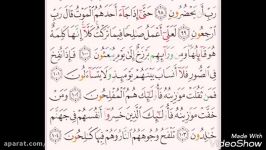 رَبِّ أَن يَحْضُرُونِ ﴿٩٨﴾ حَتَّىٰ إِذَا جَآءَ أَحَدَهُمُ ٱلْمَوْتُ قَالَ رَبِّ
ٱرْجِعُونِ ﴿٩٩﴾ لَعَلِّىٓ أَعْمَلُ صَٰلِحًا فِيمَا تَرَكْتُ كَلَّآ إِنَّهَا كَلِمَةٌ
هُوَ قَآئِلُهَا وَمِن وَرَآئِهِم بَرْزَخٌ إِلَىٰ يَوْمِ يُبْعَثُونَ ﴿١٠٠﴾ فَإِذَا نُفِخَ
فِى ٱلصُّورِ فَلَآ أَنسَابَ بَيْنَهُمْ يَوْمَئِذٍ وَلَا يَتَسَآءَلُونَ ﴿١٠١﴾ فَمَن
ثَقُلَتْ مَوَٰزِينُهُۥ فَأُو۟لَٰٓئِكَ هُمُ ٱلْمُفْلِحُونَ ﴿١٠٢﴾ وَمَنْ
خَفَّتْ مَوَٰزِينُهُۥ فَأُو۟لَٰٓئِكَ ٱلَّذِينَ خَسِرُوٓا۟ أَنفُسَهُمْ فِى جَهَنَّمَ
خَٰلِدُونَ ﴿١٠٣﴾ تَلْفَحُ وُجُوهَهُمُ ٱلنَّارُ وَهُمْ فِيهَا كَٰلِحُونَ ﴿١٠٤﴾
Made With
VivaVideo
aparat.com